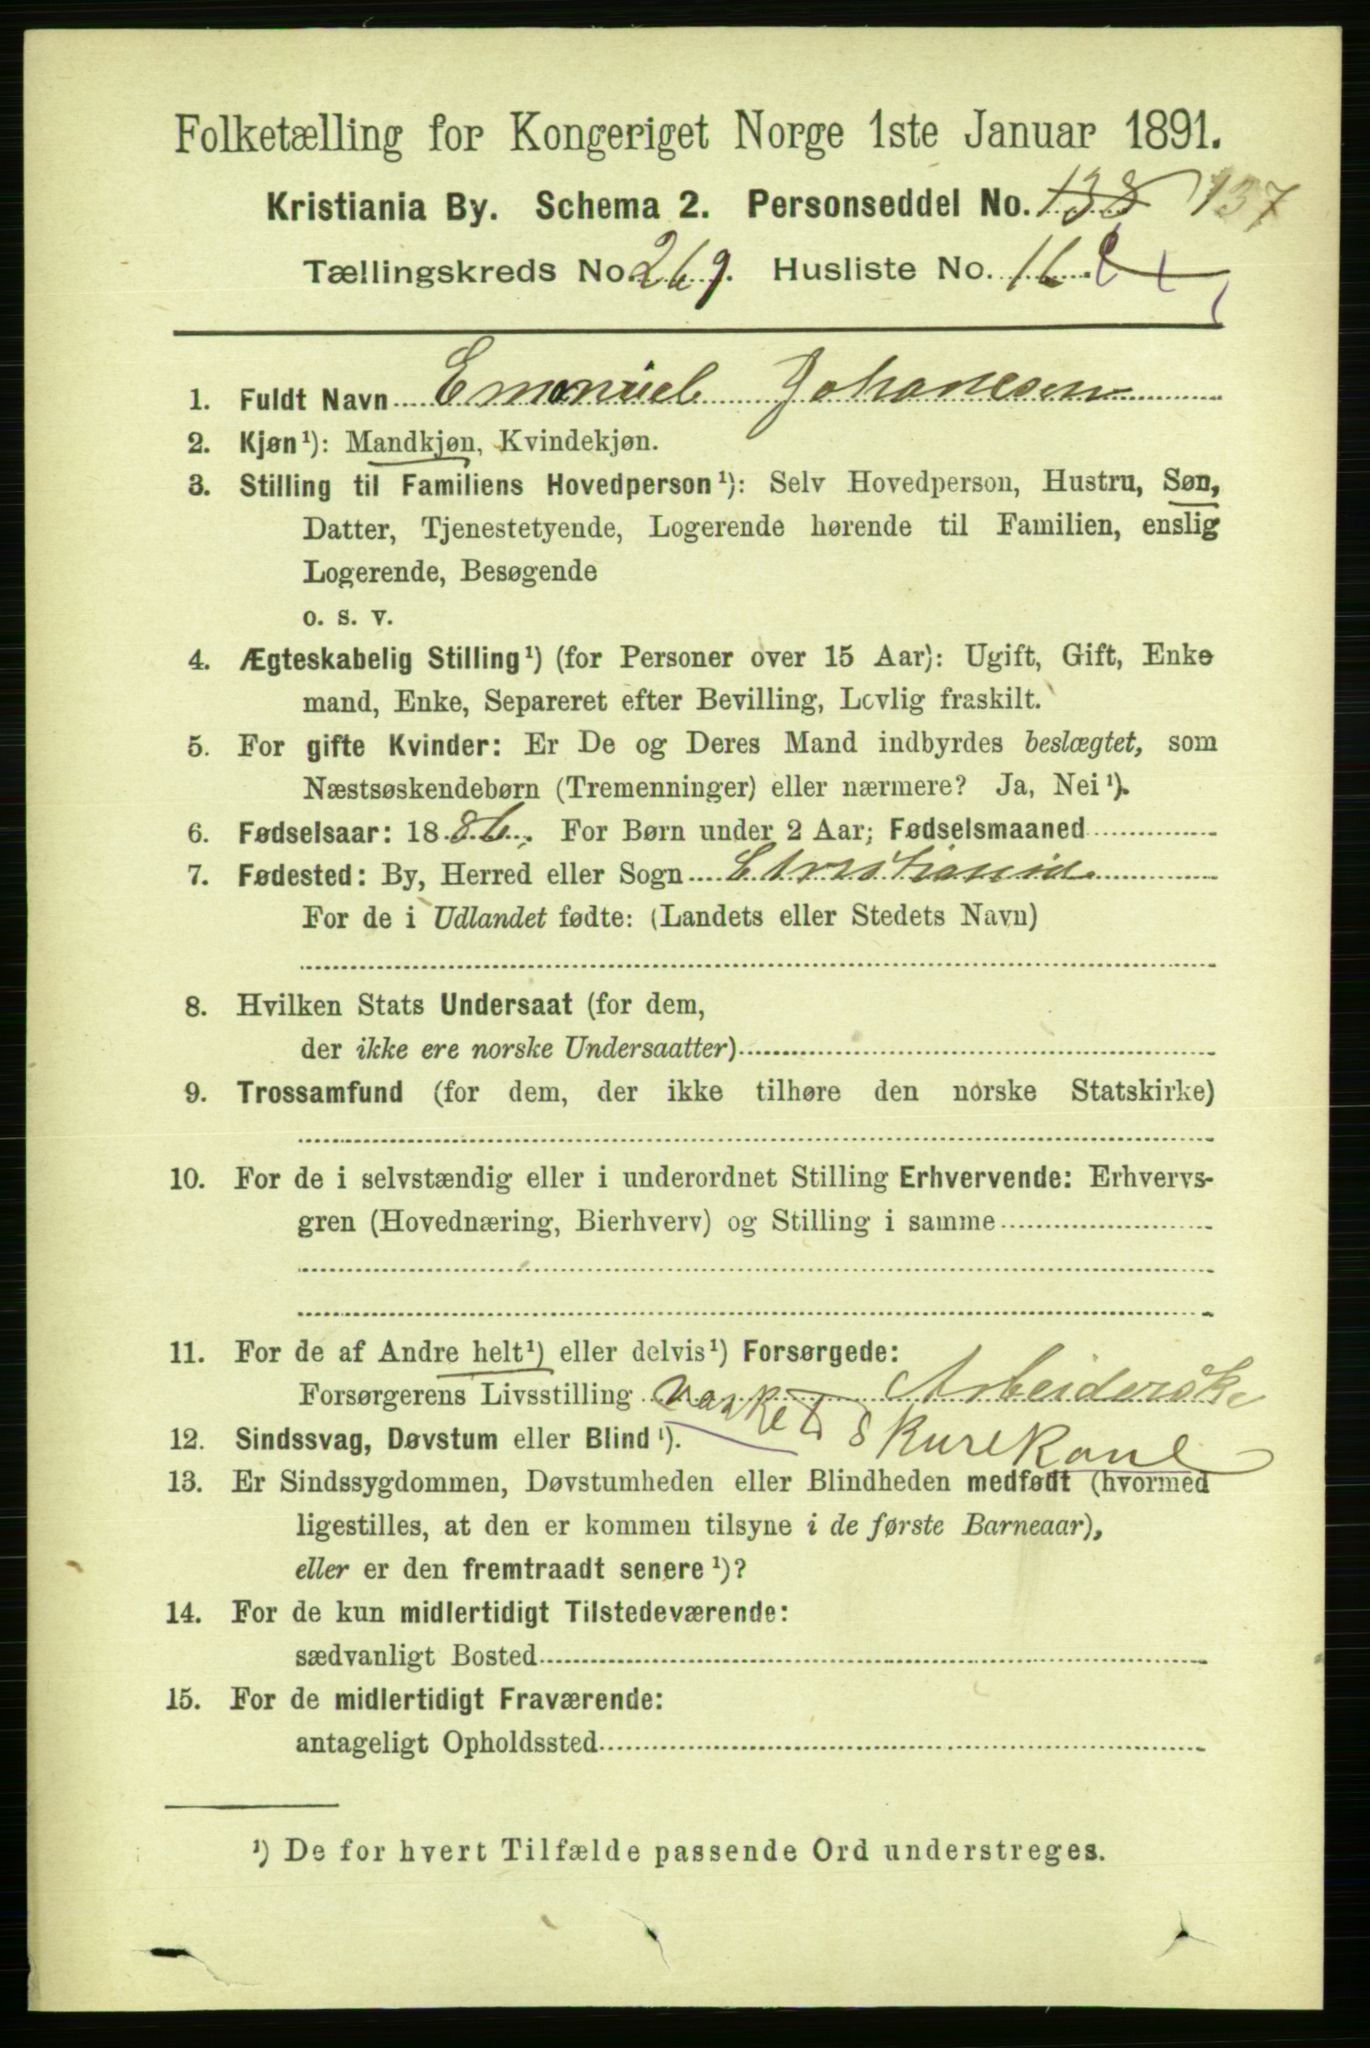 Folketælling for Kongeriget Norge 1ste Januar 1891.
Kristiania By. Schema 2. Personseddel No. 138 137
Tællingskreds No. 269. Husliste No. 16
1. Fuldt Navn Emanuel Johanesen
2. Kjøn¹): Mandkjøn, Kvindekjøn.
3. Stilling til Familiens Hovedperson¹): Selv Hovedperson, Hustru, Søn,
Datter, Tjenestetyende, Logerende hørende til Familien, enslig
Logerende, Besøgende
o. s. v.
4. Ægteskabelig Stilling¹) (for Personer over 15 Aar): Ugift, Gift, Enke
mand, Enke, Separeret efter Bevilling, Lovlig fraskilt.
5. For gifte Kvinder: Er De og Deres Mand indbyrdes beslægtet, som
Næstsøskendebørn (Tremenninger) eller nærmere? Ja, Nei¹).
6. Fødselsaar: 1886. For Børn under 2 Aar; Fødselsmaaned
7. Fødested: By, Herred eller Sogn Christiania
For de i Udlandet fødte: (Landets eller Stedets Navn)
8. Hvilken Stats Undersaat (for dem,
der ikke ere norske Undersaatter)
9. Trossamfund (for dem, der ikke tilhøre den norske Statskirke)
10. For de i selvstændig eller i underordnet Stilling Erhvervende: Erhvervs-
gren (Hovednæring, Bierhverv) og Stilling i samme
11. For de af Andre helt¹) eller delvis¹) Forsørgede:
Forsørgerens Livsstilling Arbeiderske
12. Sindssvag, Døvstum eller Blind¹). Skurekone
13. Er Sindssygdommen, Døvstumheden eller Blindheden medfødt (hvormed
ligestilles, at den er kommen tilsyne i de første Barneaar),
eller er den fremtraadt senere¹)?
14. For de kun midlertidigt Tilstedeværende:
sædvanligt Bosted
15. For de midlertidigt Fraværende:
antageligt Opholdssted
¹) De for hvert Tilfælde passende Ord understreges.